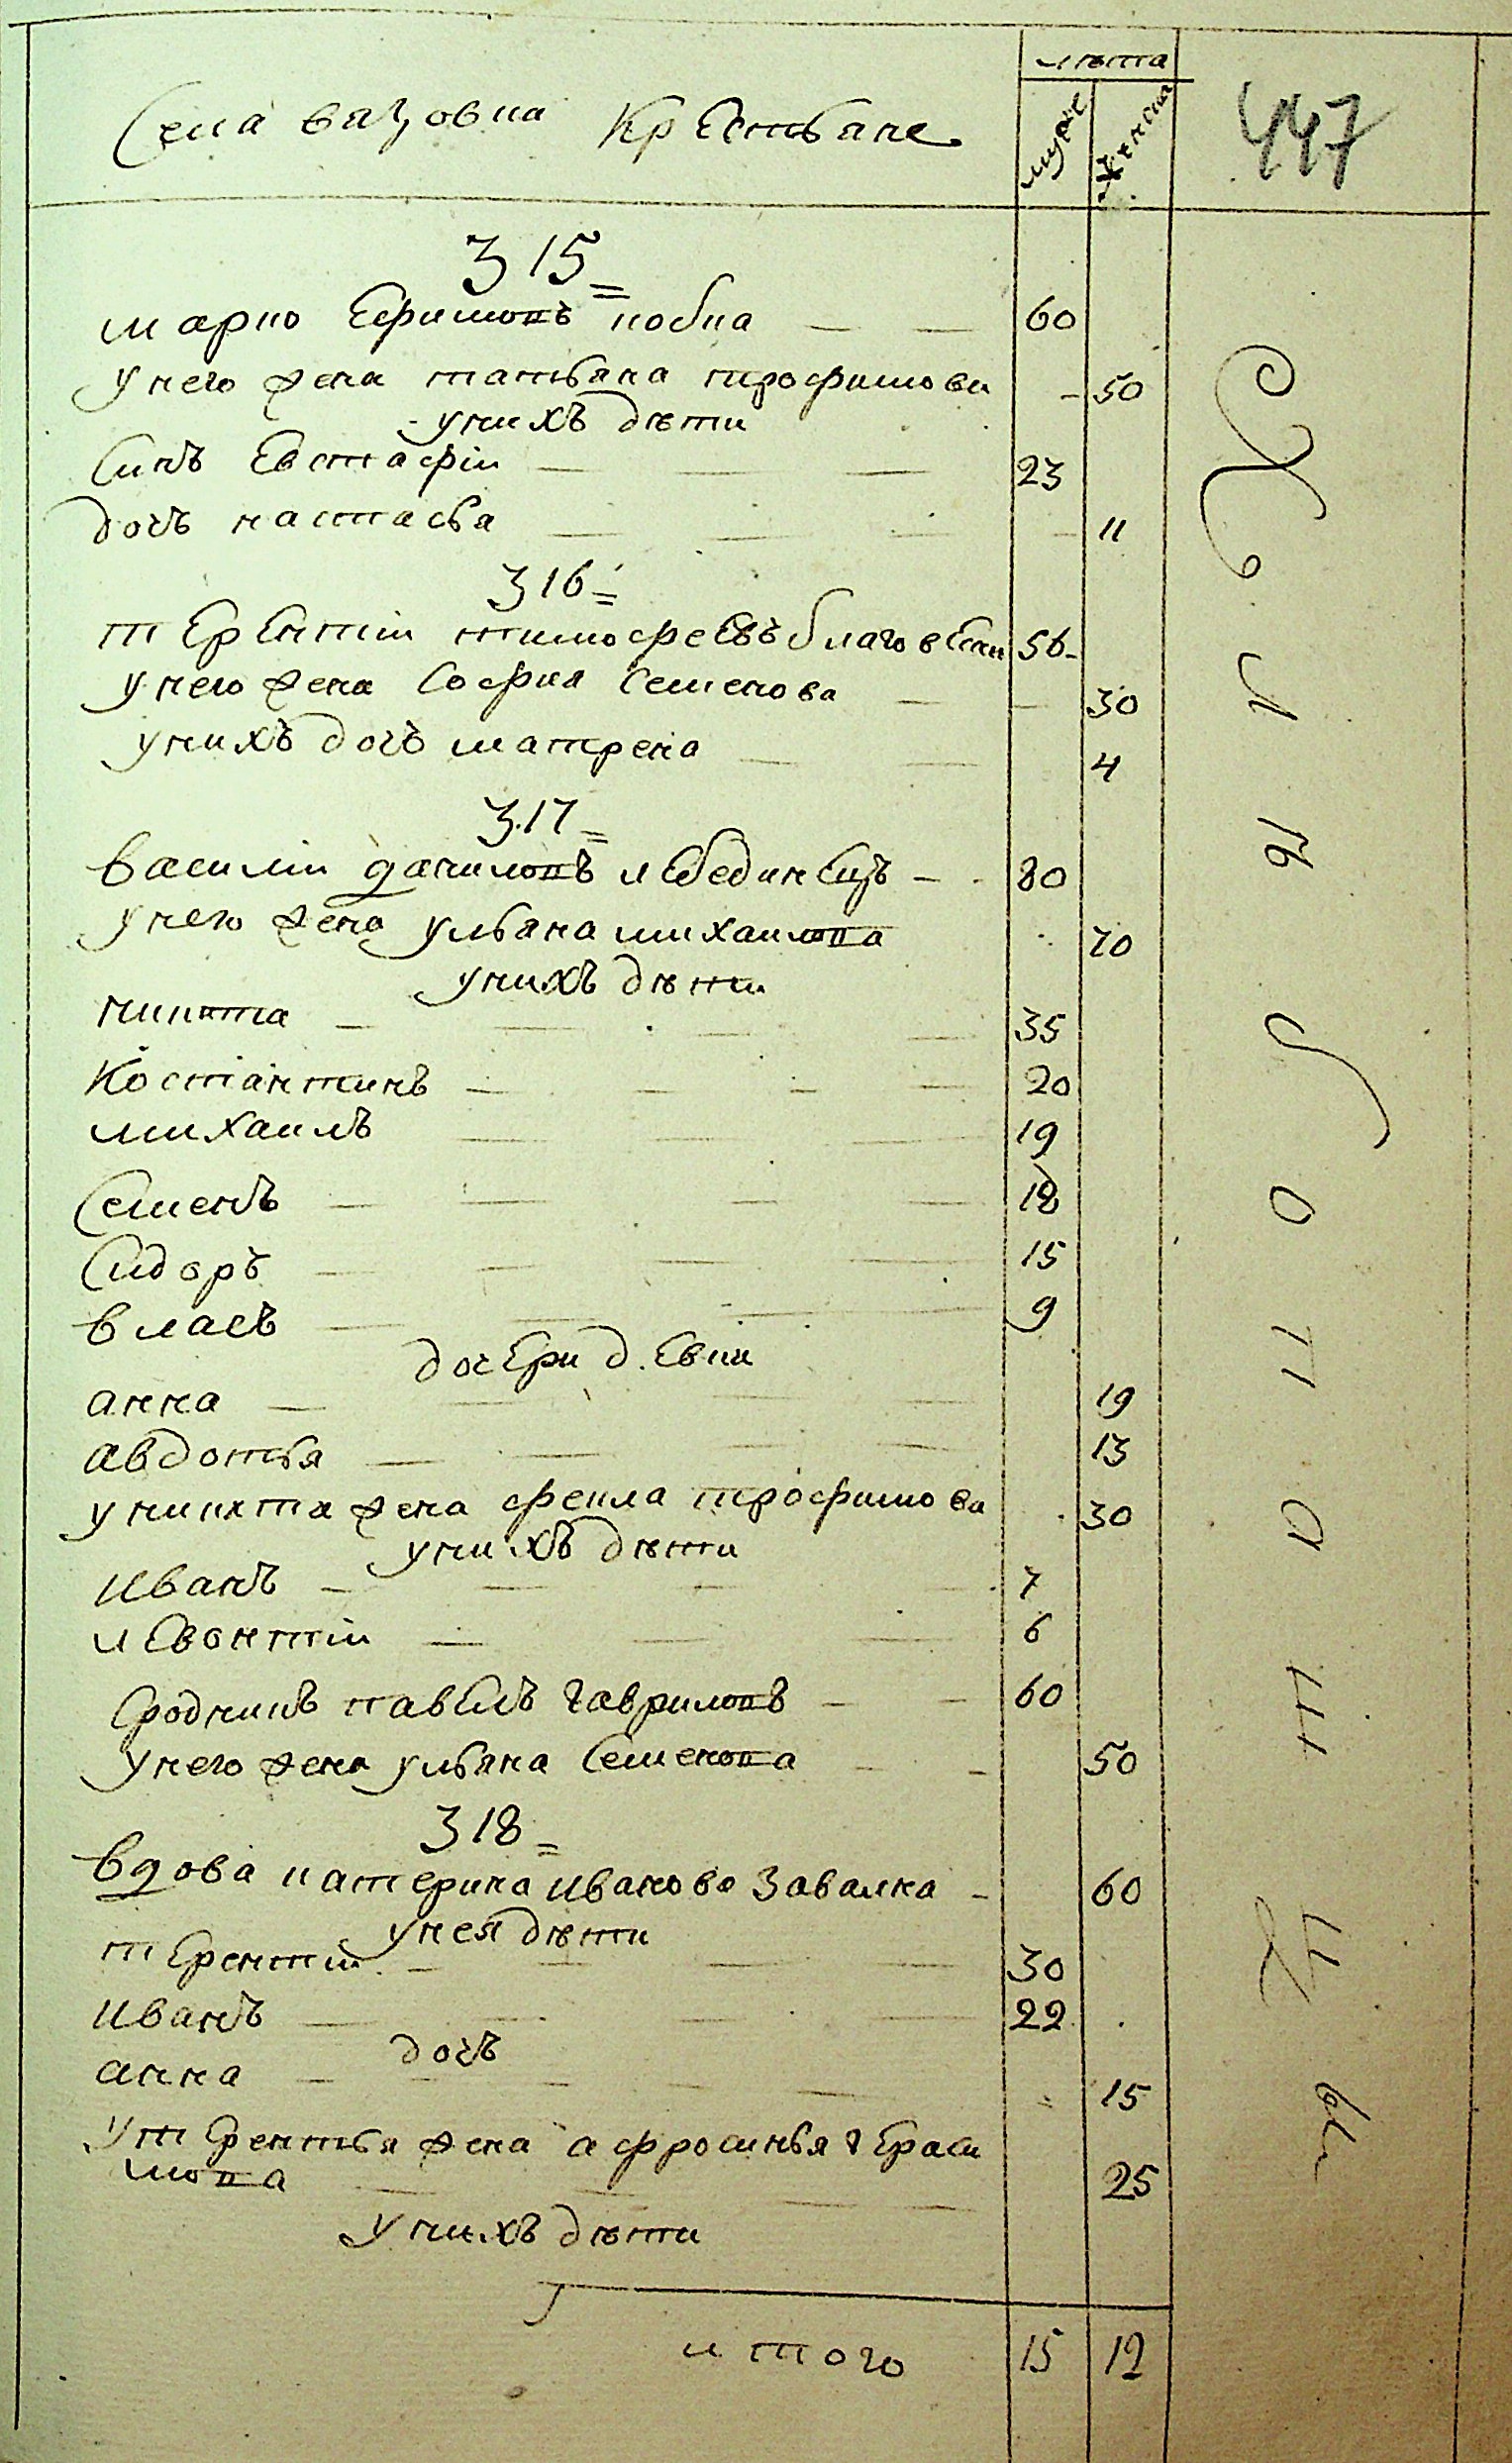 лѣта
Села вязовка Крестьяне
муж женска
447
315
марко Ефимовъ кобка 60
у него жена татьяна трофимова 50
у нихъ дѣти
Синъ Евстафіи 23
дочъ настасья 11
316
тЕрЕнтіи тимофеЕвъ 56
у него жена София Семенова 30
у нихъ дочъ матрена 4
317
василіи даниловъ лЕбединЕцъ 80
у него жена ульяна михаилова 70
у нихъ дѣти
никита 35
Костантинъ 20
михаилъ 19
Семенъ 18
Сидоръ 15
власъ 9
дочЕри д.Евки
анна 19
авдотья 13
у никита жена фекла трофимова 30
у нихъ дѣти
иванъ 7
лЕвонтіи 6
Сродникъ павЕлъ гавриловъ 60
у него жена ульяна Семенова 50
318
вдова катерина иванова Завалка 60
у нея дѣти
тЕрентіи 30
иванъ 22
дочъ
анна 15
у тЕрентья жена афросинья гЕраси
мова 25
у нихъ дѣти
итого 15 12